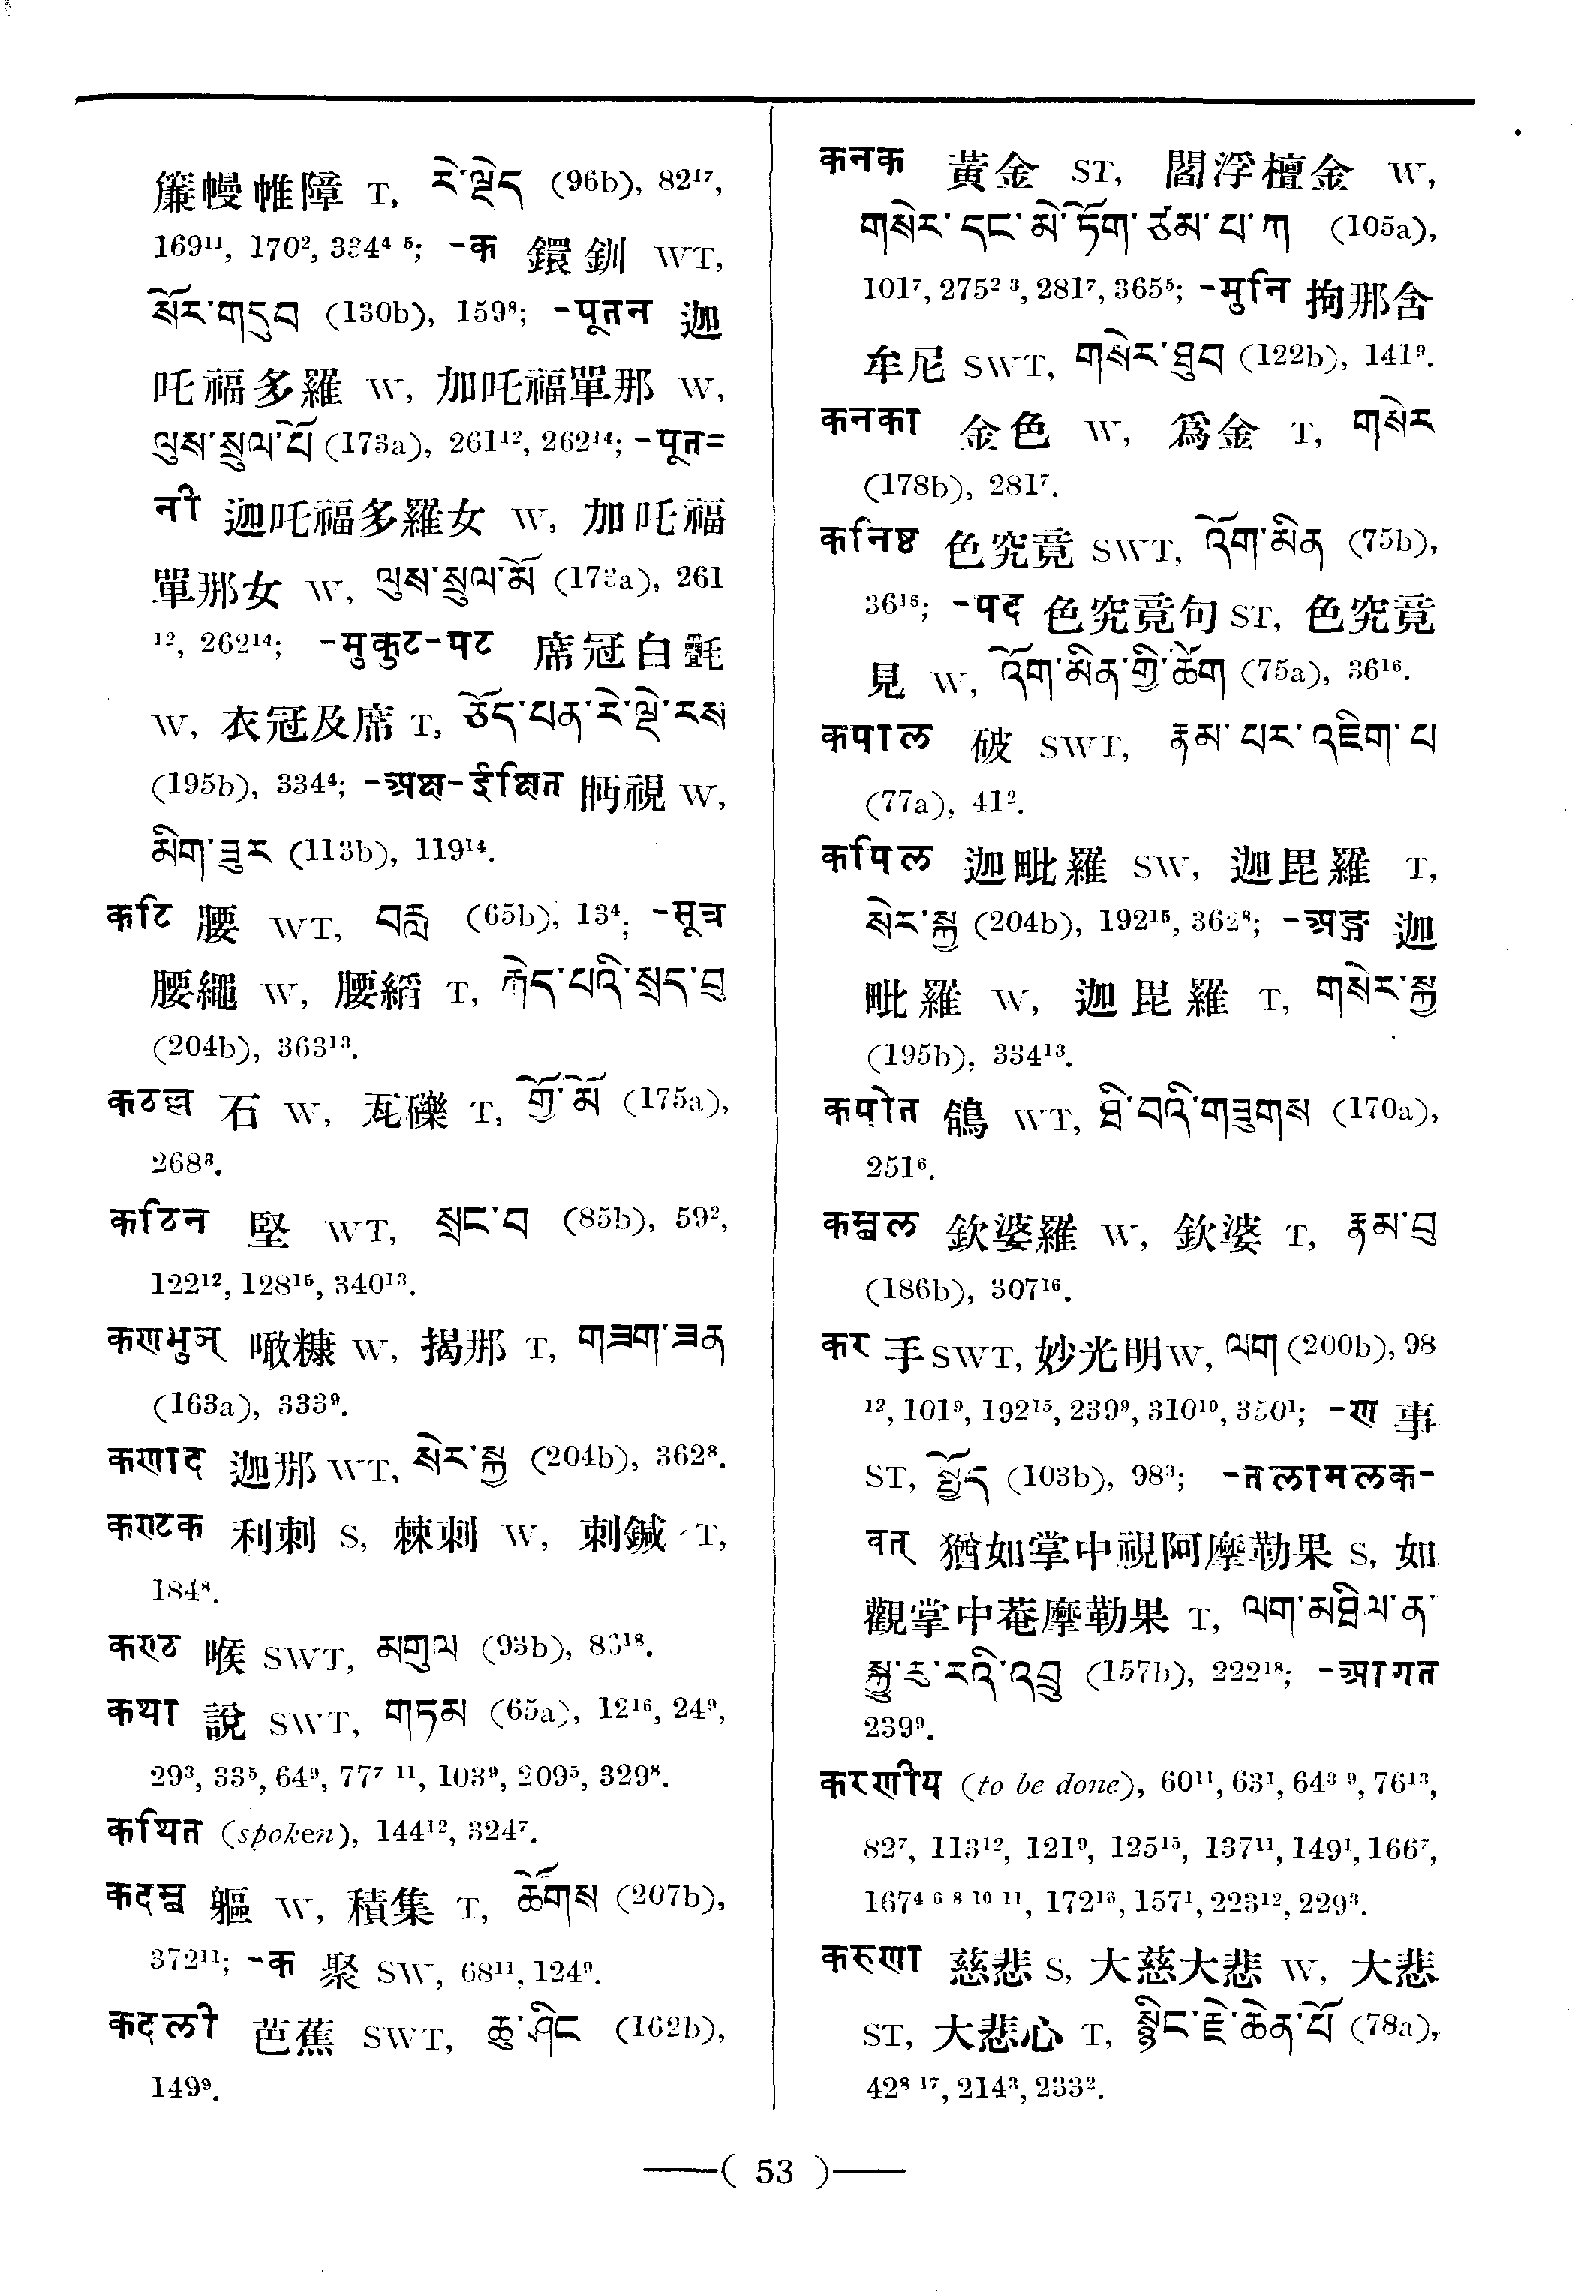 簾幔帷障 T, རེ་ལྡེད (96b), 82¹⁷,
169¹¹, 170², 334⁴ ⁵; -क 鐶釧 WT,
སོར་གདུབ (130b), 159⁸; -पूतन 迦
吒福多羅 W, 加吒福單那 W,
ལུས་སྲུལ་པོ (173a), 261¹², 262¹⁴; -पूत=
नी 迦吒福多羅女 W, 加吒福
單那女 W, ལུས་སྲུལ་མོ (173a), 261
¹², 262¹⁴; -मुकुट-पट 席冠白氎
W, 衣冠及席 T, ཅོད་པན་རེ་ལྡེ་རས
(195b), 334⁴; -अक्ष-ईक्षित 眄視 W,
མིག་ཟུར (113b), 119¹⁴.
कटि 腰 WT, བརླ (65b), 13⁴; -सूत्र
腰繩 W, 腰縚 T, རྐེད་པའི་སྲད་བུ
(204b), 363¹³.
कठल्ल 石 W, 瓦礫 T, གྱོ་མོ (175a),
268⁸.
कठिन 堅 WT, སྲང་བ (85b), 59²,
122¹², 128¹⁵, 340¹³.
कणभुज् 噉糠 W, 揭那 T, གཟག་ཟན
(163a), 333⁹.
कणाद 迦那 WT, སེར་སྐྱ (204b), 362⁸.
कण्टक 利刺 S, 棘刺 W, 刺鍼 T,
184⁸.
कण्ठ 喉 SWT, མགུལ (93b), 83¹⁸.
कथा 說 SWT, གཏམ (65a), 12¹⁶, 24⁹,
29³, 33⁵, 64⁹, 77⁷ ¹¹, 103⁹, 209⁵, 329⁸.
कथित (spoken), 144¹², 324⁷.
कदम्ब 軀 W, 積集 T, ཚོགས (207b),
372¹¹; -क 聚 SW, 68¹¹, 124⁹.
कदली 芭蕉 SWT, ཆུ་ཤིང (162b),
149⁹.
कनक 黃金 ST, 閻浮檀金 W,
གསེར་དང་མེ་ཏོག་ཙམ་པ་ཀ (105a),
101⁷, 275² ³, 281⁷, 365⁵; -मुनि 拘那含
牟尼 SWT, གསེར་ཐུབ (122b), 141⁹.
कनका 金色 W, 爲金 T, གསེར
(178b), 281⁷.
कनिष्ठ 色究竟 SWT, འོག་མིན (75b),
36¹⁶; -पद 色究竟句 ST, 色究竟
見 W, འོག་མིན་གྱི་ཚོག (75a), 36¹⁶.
कपाल 破 SWT, རྣམ་པར་འཇིག་པ
(77a), 41².
कपिल 迦毗羅 SW, 迦毘羅 T,
སེར་སྐྱ (204b), 192¹⁵, 362⁸; -अङ्ग 迦
毗羅 W, 迦毘羅 T, གསེར་སྐྱ
(195b), 334¹³.
कपोत 鴿 WT, ཐི་བའི་གཟུགས (170a),
251⁶.
कम्बल 欽婆羅 W, 欽婆 T, རྣམ་བུ
(186b), 307¹⁶.
कर 手 SWT, 妙光明 W, ལག (200b), 98
¹², 101⁹, 192¹⁵, 239⁹, 310¹⁰, 350¹; -ण 事
ST, སྤྱོད (103b), 98³; -तलामलक-
वत् 猶如掌中視阿摩勒果 S, 如
觀掌中菴摩勒果 T, ལག་མཐིལ་ན་
སྐྱུ་རུ་རའི་འབྲུ (157b), 222¹⁸; -आगत
239⁹.
करणीय (to be done), 60¹¹, 63¹, 64³ ⁹, 76¹³,
82⁷, 113¹², 121⁹, 125¹⁵, 137¹¹, 149¹, 166⁷,
167⁴ ⁶ ⁸ ¹⁰ ¹¹, 172¹⁶, 157¹, 223¹², 229³.
करुणा 慈悲 S, 大慈大悲 W, 大悲
ST, 大悲心 T, སྙིང་རྗེ་ཆེན་པོ (78a),
42⁸ ¹⁷, 214³, 233².
—( 53 )—